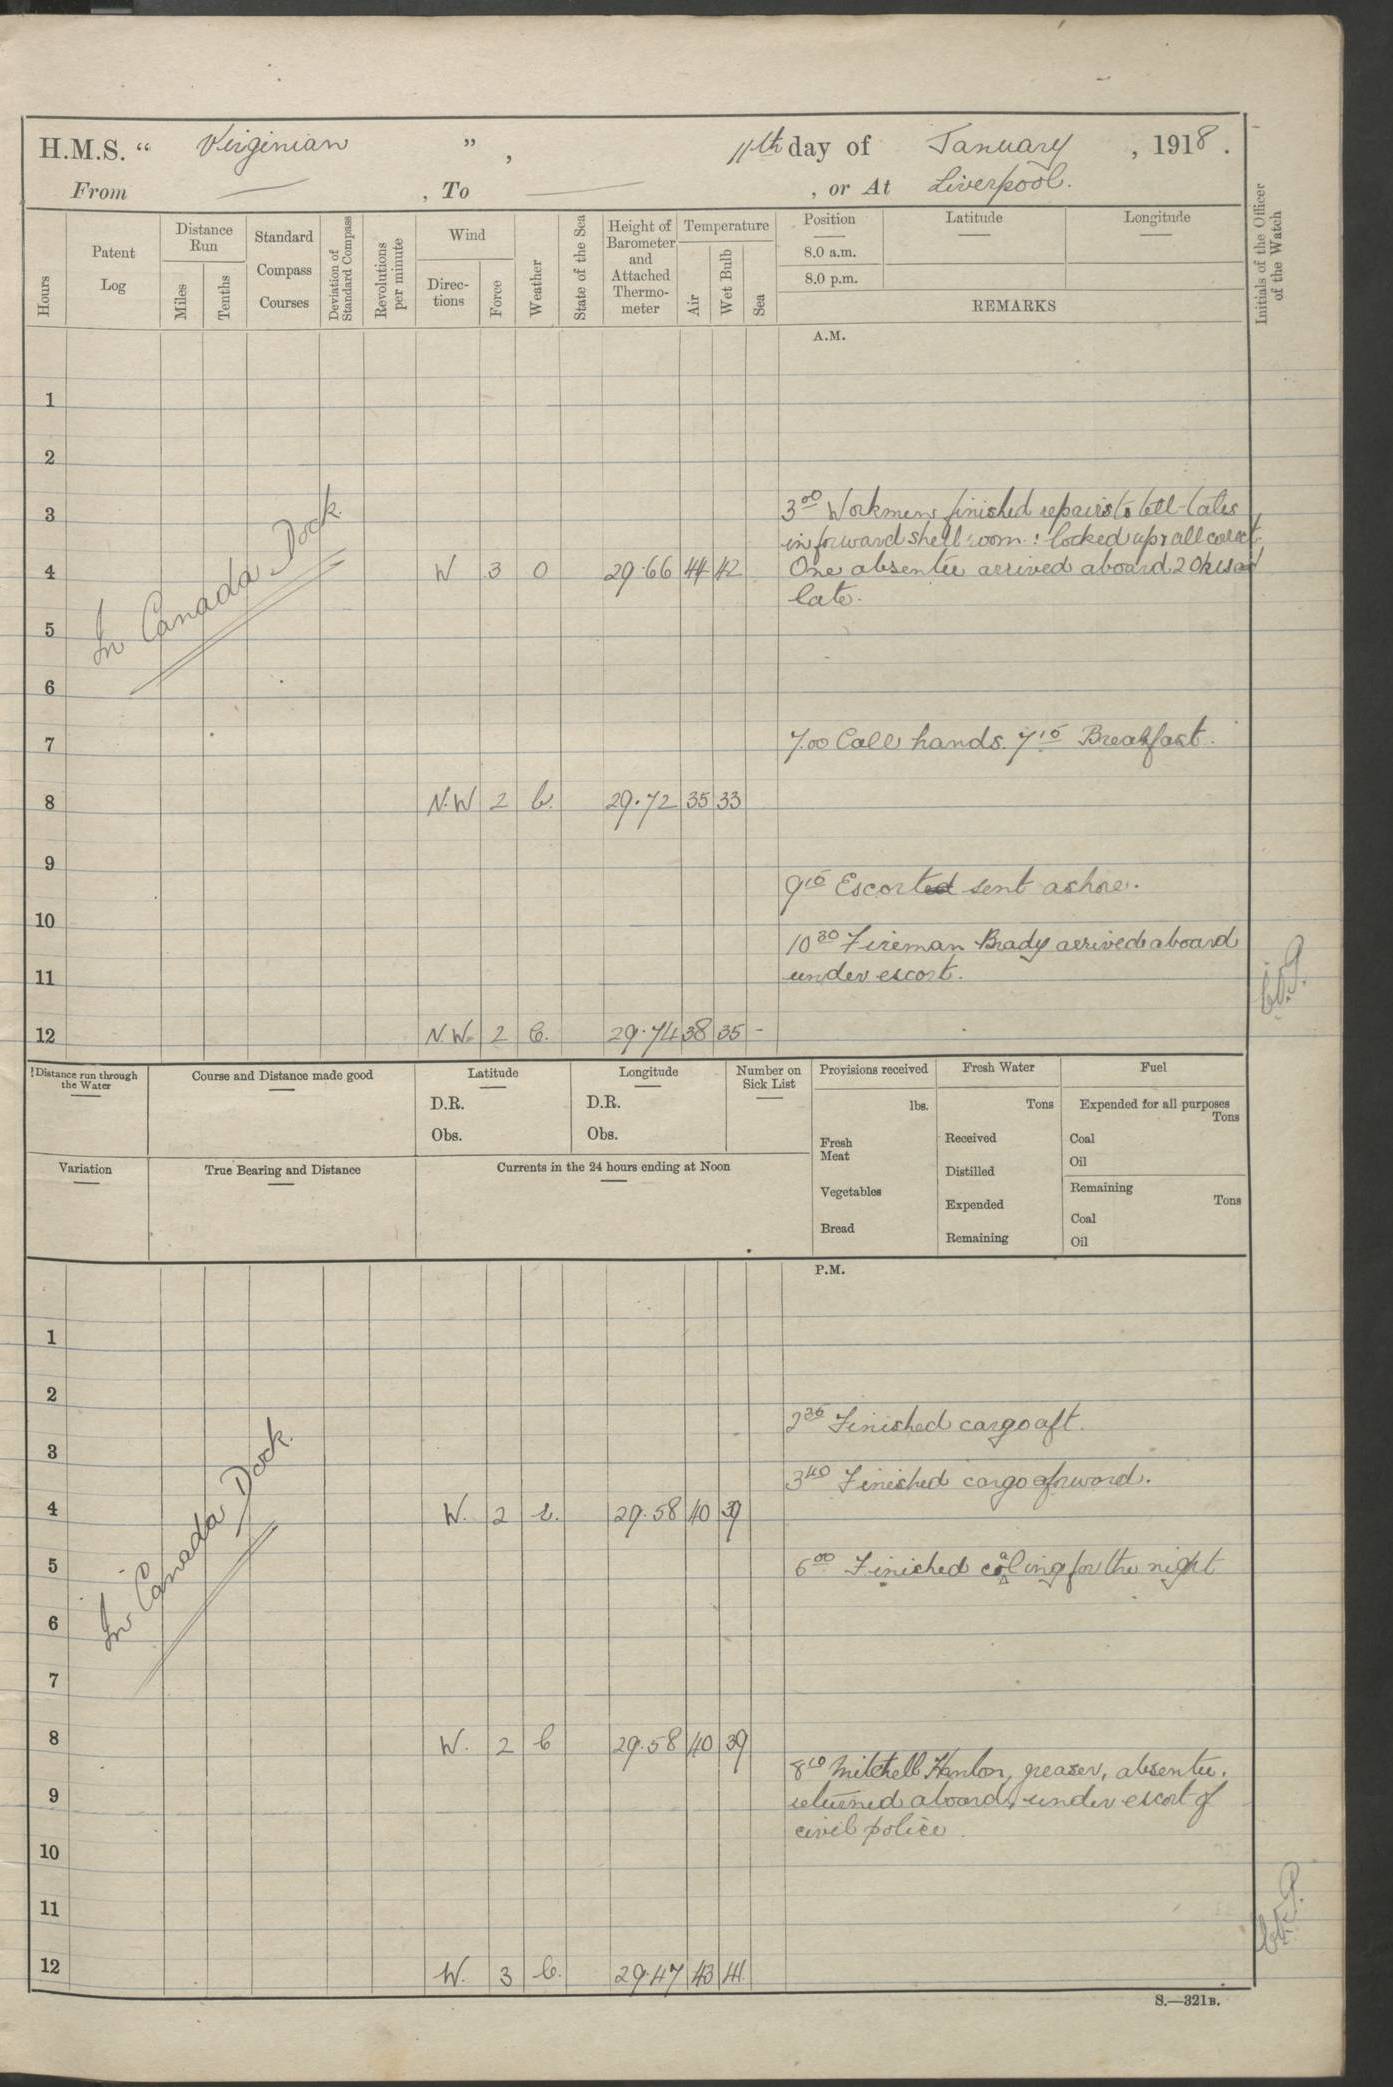 H.M.S. “ Virginian ” , 11th day of January , 1918 .
From — , To — , or At Liverpool.
Hours
Patent Log
Distance Run
Miles
Tenths
Standard Compass Courses
Deviation of Standard Compass
Revolutions per minute
Wind
Direc-tions
Force
Weather
State of the Sea
Height of Barometer and Attached Thermo-meter
Temperature
Air
Wet Bulb
Sea
Position
Latitude
Longitude
8.0 a.m.
8.0 p.m.
REMARKS
Initials of the Officer of the Watch
A.M.
1
2
In Canada Dock
3 3 00 Workmen finished repairs to tell-tales
in forward shell room : locked up & all correct.
4 W 3 O 29.66 44 42 One absentee arrived aboard
late.
5
6
7 7.00 Call hands. 7 15 Breakfast.
8 N.W 2 b. 29.72 35 33
9
9 15 Escorted sent ashore.
10
10 30 Fireman Brady arrived aboard
11 under escort.
12 N.W. 2 C. 29.74 38 35 -
Distance run through the Water
Course and Distance made good
Latitude
D.R.
Obs.
Longitude
D.R.
Obs.
Number on Sick List
Provisions received
lbs.
Fresh Meat
Vegetables
Bread
Fresh Water
Tons
Received
Distilled
Expended
Remaining
Fuel
Expended for all purposes
Tons
Coal
Oil
Remaining
Tons
Coal
Oil
Variation
True Bearing and Distance
Currents in the 24 hours ending at Noon
P.M.
1
2
In Canada Dock.
2 36 Finished cargo aft.
3
3 40 Finished cargo forward.
4 W. 2 c. 29.58 40 39
5 6 00 Finished coaling for the night
6
7
8 W. 2 b 29.58 40 39
8 10 Mitchell Hanlon, greaser, absentee.
9 returned aboard, under escort of
civil police.
10
11
12 W. 3 b. 29.47 43 41
S.—321B.